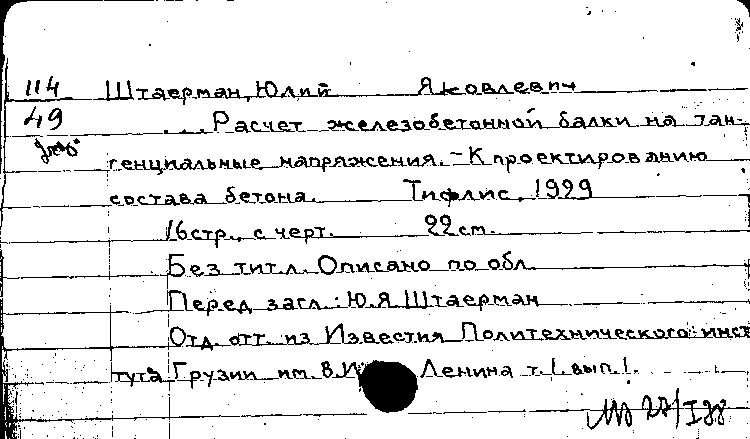 114 Штаерман, Юлий Яковлевич
49 ... Расчет железобетонной балки на тан-
генциальные напряжения. - К проектированию
состава бетона. Тифлис, 1929
16 стр., с черт. 22 см.
Без тит. л. Описано по обл.
Перед загл.: Ю.Я. Штаерман
Отд. отт. из Известия Политехнического инст
тута Грузии им. В.И Ленина т. 1. вып. 1.